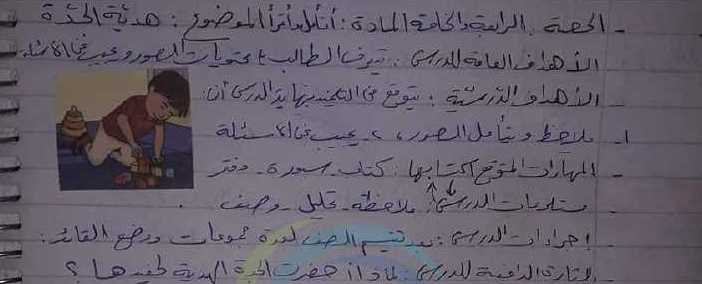 - الحصة: الرابعة والخامسة المادة: أتأمل وأقرأ الموضوع: هدية الجدّة
الأهداف العامة للدرس: تعرف الطالب محتويات الصور ويجيب عن الأسئلة
- الأهداف التدريسية: يتوقع من التلميذ نهاية الدرس أن:
1- يلاحظ ويتأمل الصور، 2- يجيب عن الأسئلة
المهارات المتوقع اكتسابها: كتاب - سبورة - دفتر
مستلزمات الدرس: ملاحظة - تحليل - وصف.
- إجراءات الدرس: بعد تقسيم الصف لعدة مجموعات ووضع القائد:
الإثارة الدافعية للدرس: لماذا حضرت الجدة الهدية لحفيدها؟